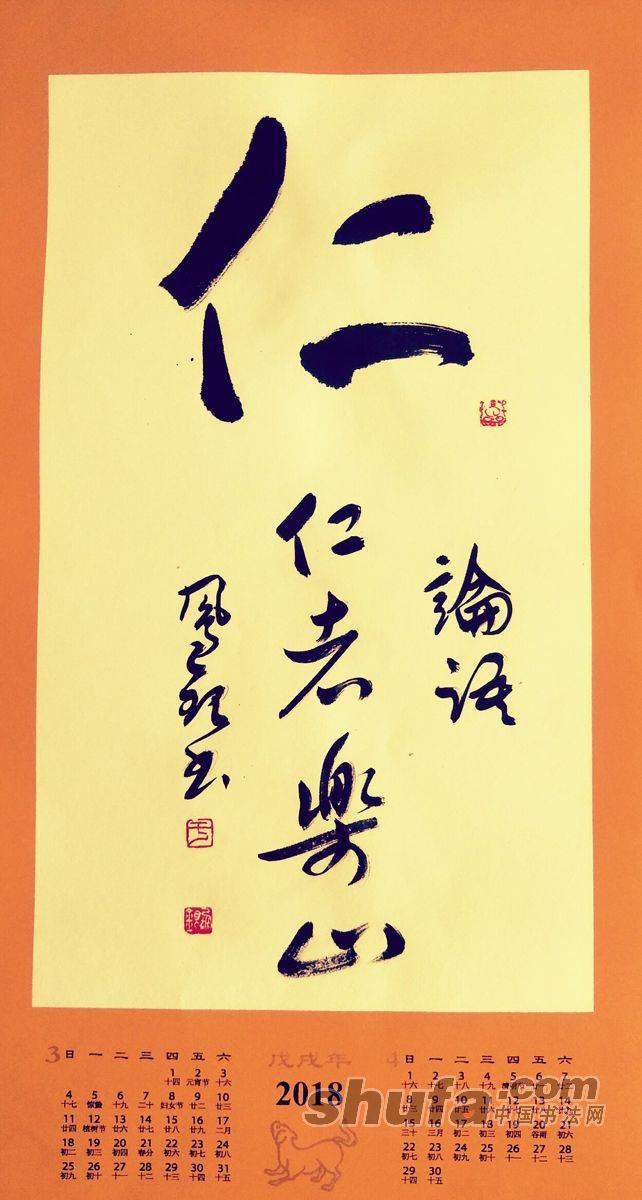 仁
論語
仁者樂山
3
日 一 二 三 四 五 六
1 2 3
十四 元宵节 十六
4 5 6 7 8 9 10
十七 惊蛰 十九 二十 妇女节 廿二 廿三
11 12 13 14 15 16 17
廿四 植树节 廿六 廿七 廿八 廿九 二月
18 19 20 21 22 23 24
初二 初三 初四 春分 初六 初七 初八
25 26 27 28 29 30 31
初九 初十 十一 十二 十三 十四 十五
戊戌年
2018
4
日 一 二 三 四 五 六
1 2 3 4 5 6 7
十六 十七 十八 十九 清明节
8 9 10 11 12 13 14
廿三 廿四 廿五
15 16 17 18 19 20 21
三十 三月 初二 初三 初四 谷雨 初六
22 23 24 25 26 27 28
初七 初八 初九 初十 十一 十二 十三
29 30
十四 十五
shufa.com
中国书法网